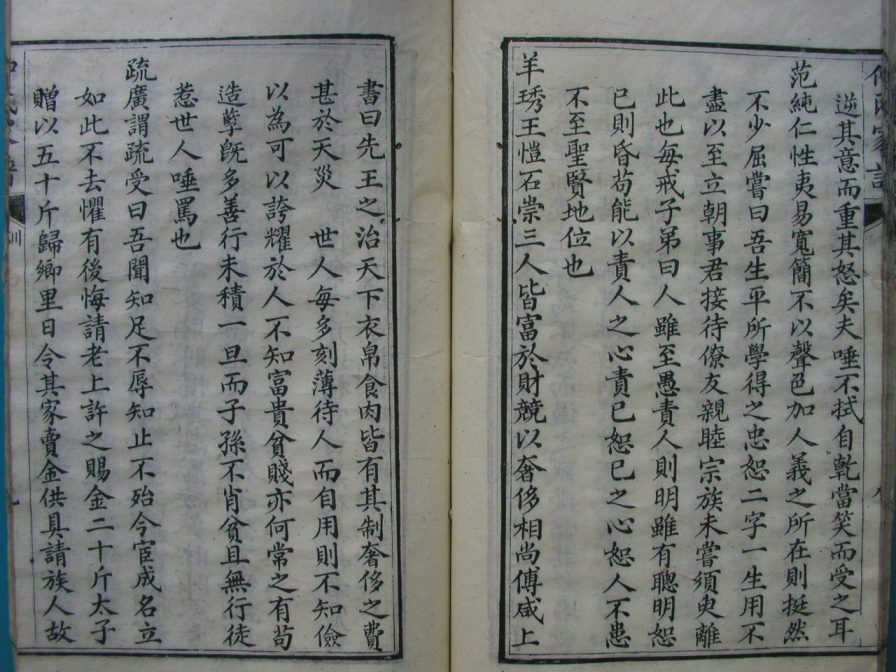 逆其意而重其怒矣夫唾不拭自乾當笑而受之耳
范純仁性夷易寬簡不以聲色加人義之所在則挺然
不少屈嘗曰吾生平所學得之忠恕二字一生用不
盡以至立朝事君接待僚友親睦宗族未嘗須臾離
此也每戒子弟曰人雖至愚責人則明雖有聰明恕
己則昏苟能以責人之心責己恕己之心恕人不患
不至聖賢地位也
羊琇王愷石崇三人皆富於財競以奢侈相尚傅咸上
書曰先王之治天下衣帛食肉皆有其制奢侈之費
甚於天災 世人每多刻薄待人而自用則不知儉
以為可以誇耀於人不知富貴貧賤亦何常之有苟
造孽旣多善行未積一旦而子孫不肖貧且無行徒
惹世人唾罵也
疏廣謂疏受曰吾聞知足不辱知止不殆今宦成名立
如此不去懼有後悔請老上許之賜金二十斤太子
贈以五十斤歸鄉里日令其家賣金供具請族人故